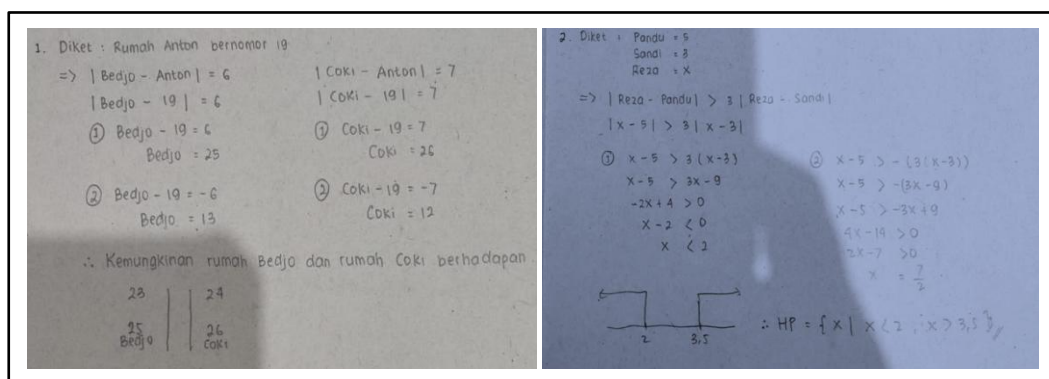 1. Diket : Rumah Anton bernomor 19
=> | Bedjo - Anton | = 6
| Bedjo - 19 | = 6
① Bedjo - 19 = 6
Bedjo = 25
② Bedjo - 19 = -6
Bedjo = 13
| Coki - Anton | = 7
| Coki - 19 | = 7
① Coki - 19 = 7
Coki = 26
② Coki - 19 = -7
Coki = 12
∴ Kemungkinan rumah Bedjo dan rumah Coki berhadapan
23 | | 24
25 | | 26
Bedjo Coki
2. Diket : Pandu = 5
Sandi = 3
Reza = x
=> | Reza - Pandu | > 3 | Reza - Sandi |
|x - 5| > 3 | x - 3|
① x - 5 > 3 (x-3)
x - 5 > 3x - 9
-2x + 4 > 0
x - 2 < 0
x < 2
② x - 5 > - (3(x-3))
x - 5 > -(3x - 9)
x - 5 > -3x + 9
4x - 14 > 0
2x - 7 > 0
x = 7/2
2 3,5
∴ HP = { x | x < 2 , x > 3,5 }